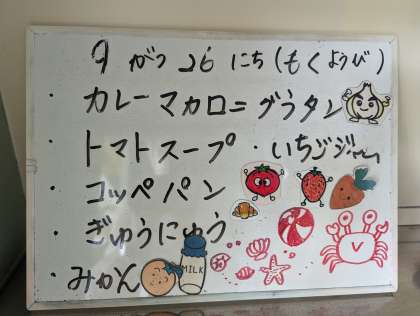 9 がつ 26 にち(もくようび)
・カレーマカロニグラタン
・トマトスープ・いちごジャム
・コッペパン
・ぎゅうにゅう
・みかん
MILK